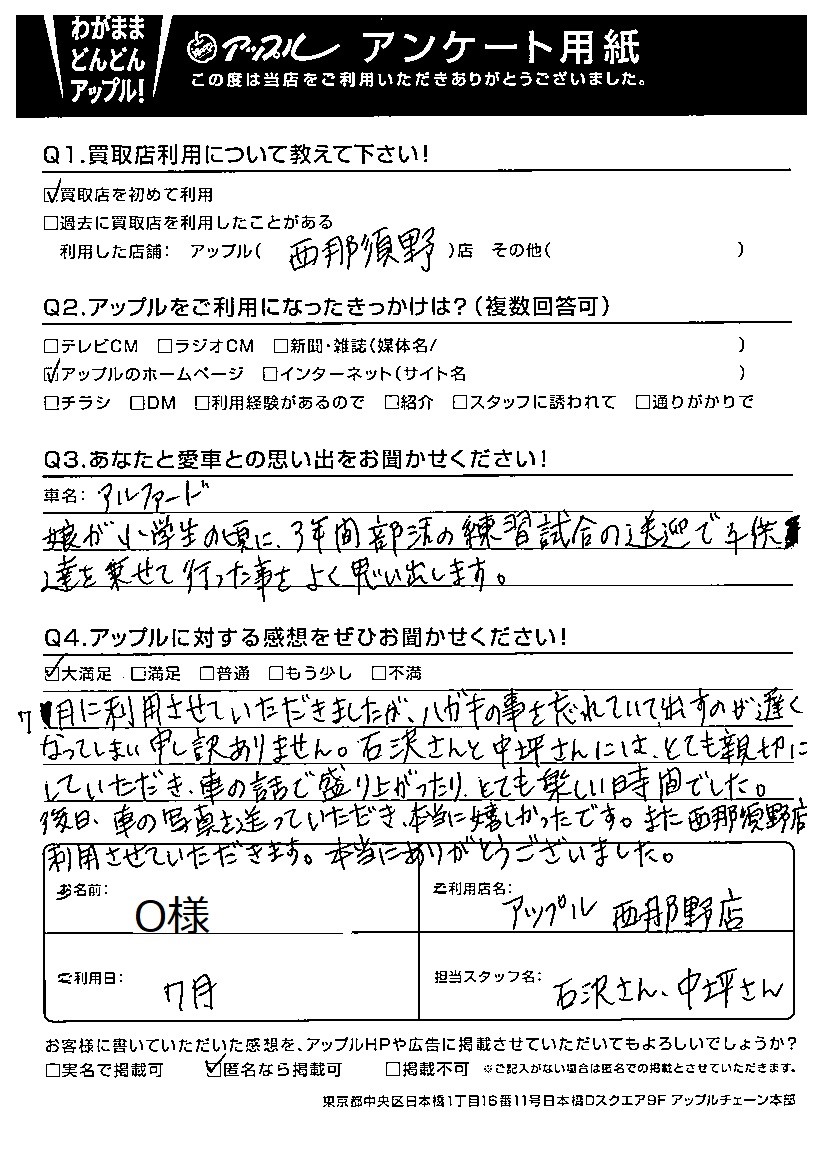 わがまま
どんどん
アップル!
アップル アンケート用紙
この度は当店をご利用いただきありがとうございました。
Q1.買取店利用について教えて下さい!
☑買取店を初めて利用
□過去に買取店を利用したことがある
利用した店舗: アップル( 西那須野 )店 その他( )
Q2.アップルをご利用になったきっかけは?(複数回答可)
□テレビCM □ラジオCM □新聞・雑誌(媒体名/ )
☑アップルのホームページ □インターネット(サイト名 )
□チラシ □DM □利用経験があるので □紹介 □スタッフに誘われて □通りがかりで
Q3.あなたと愛車との思い出をお聞かせください!
車名: アルファード
娘が小学生の頃に、3年間部活の練習試合の送迎で子供
達を乗せて行った事をよく思い出します。
Q4.アップルに対する感想をぜひお聞かせください!
☑大満足 □満足 □普通 □もう少し □不満
7月に利用させていただきましたが、ハガキの事を忘れていて出すのが遅く
なってしまい申し訳ありません。石沢さんと中坪さんには、とても親切に
していただき、車の話で盛り上がったり、とても楽しい時間でした。
後日、車の写真も送っていただき、本当に嬉しかったです。また西那須野店
利用させていただきます。本当にありがとうございました。
お名前: O様
ご利用店名: アップル 西那野店
ご利用日: 7月
担当スタッフ名: 石沢さん、中坪さん
お客様に書いていただいた感想を、アップルHPや広告に掲載させていただいてもよろしいでしょうか?
□実名で掲載可 ☑匿名なら掲載可 □掲載不可 ※ご記入がない場合は匿名での掲載とさせていただきます。
東京都中央区日本橋1丁目16番11号日本橋Dスクエア9F アップルチェーン本部